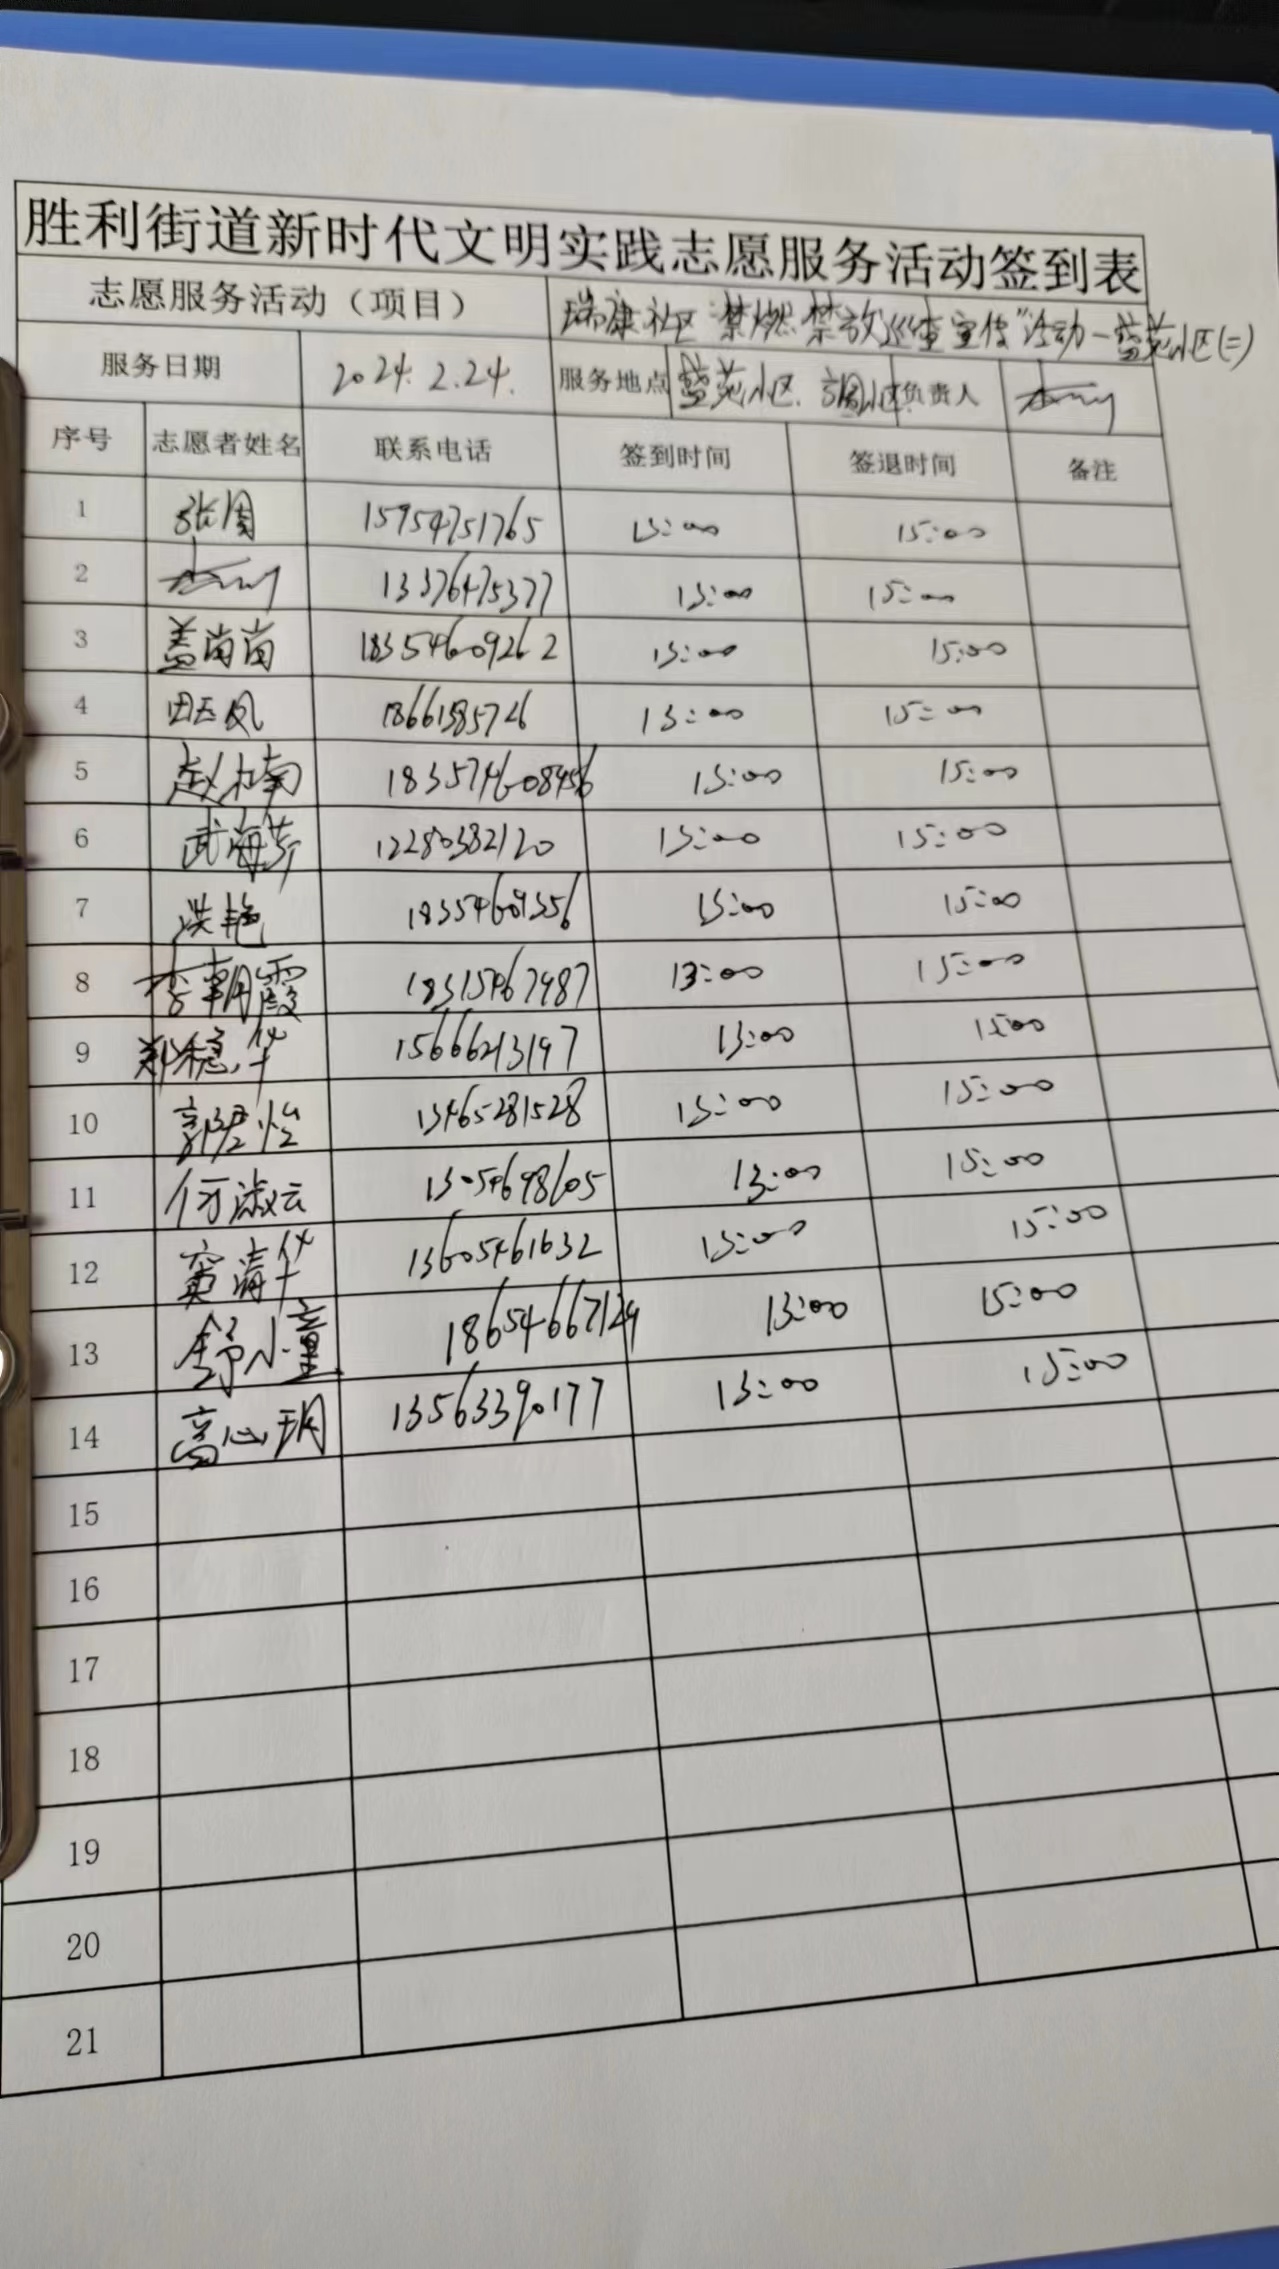 胜利街道新时代文明实践志愿服务活动签到表
志愿服务活动（项目） 瑞康社区"禁燃禁放巡查宣传"活动—蓝苑小区(二)
服务日期 2024.2.24. 服务地点 蓝苑小区. 负责人
序号 志愿者姓名 联系电话 签到时间 签退时间 备注
1 张周 15954751765 13:00 15:00
2 13376475377 13:00 15:00
3 盖岗岗 18354609262 13:00 15:00
4 田玉凤 1866 13:00 15:00
5 赵木南 13:00 15:00
6 武海芬 13:00 15:00
7 洪艳 18354609356 13:00 15:00
8 李朝霞 18315467987 13:00 15:00
9 郑稳华 15666213197 13:00 15:00
10 郭君怡 13465281528 13:00 15:00
11 何淑云 13054698605 13:00 15:00
12 窦清华 13605461632 13:00 15:00
13 舒小童 18654667129 13:00 15:00
14 高心玥 13563390177 13:00 15:00
15
16
17
18
19
20
21